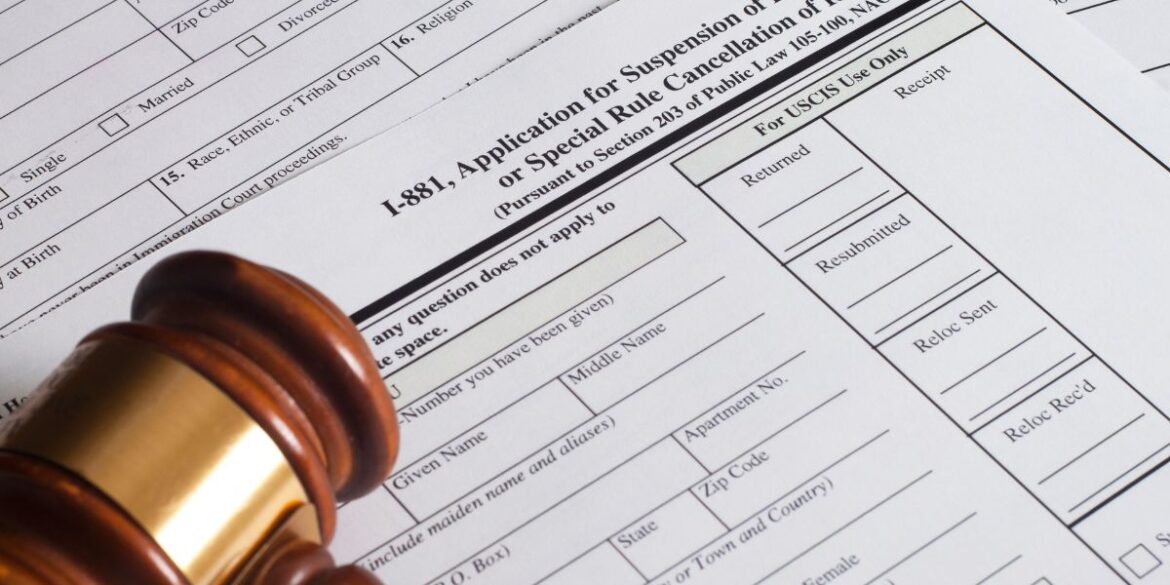 Zip Code
Divorced
16. Religion
in the past
Married
15. Race, Ethnic, or Tribal Group
Single
of Birth
at Birth
been in Immigration Court proceedings.
I-881, Application for Suspension of
or Special Rule Cancellation of
(Pursuant to Section 203 of Public Law 105-100,
For USCIS Use Only
Receipt
Returned
Resubmitted
Reloc Sent
Reloc Rec'd
any question does not apply to
space.
-Number you have been given)
Given Name
Middle Name
(include maiden name and aliases)
Apartment No.
O. Box)
State
Zip Code
or Town and Country)
Female